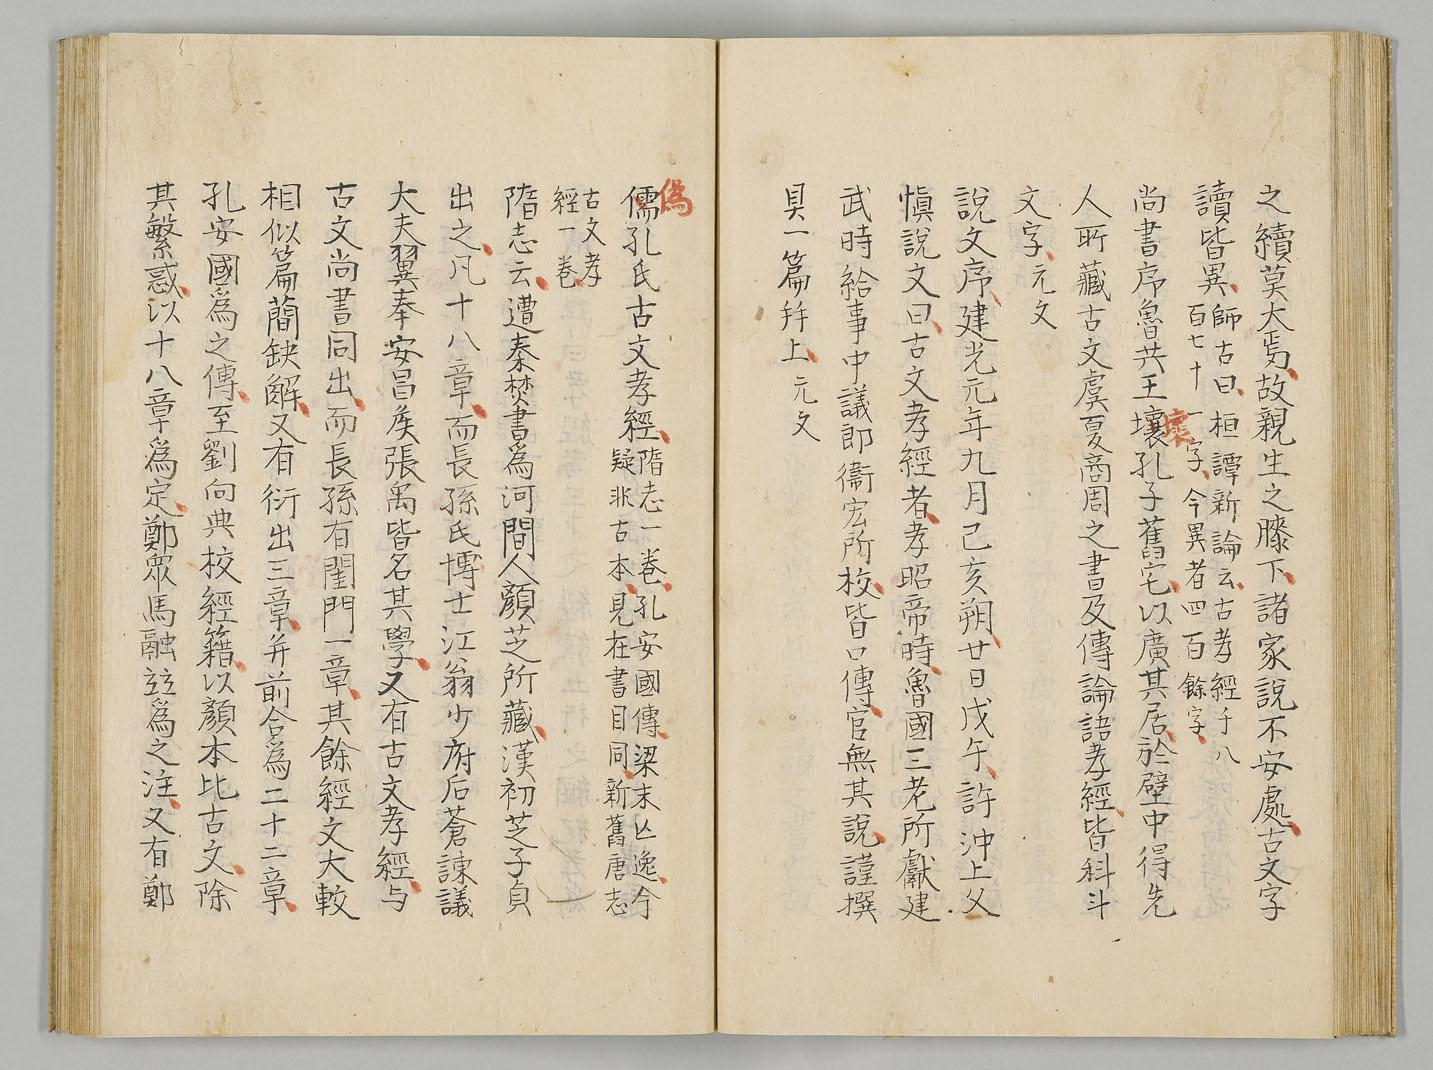 之續莫大焉故親生之膝下諸家說不安處古文字
讀皆異師古曰桓譚新論云古孝經千八
百七十一字今異者四百餘字
尚書序魯共王壞孔子舊宅以廣其居於壁中得先
壞
人所藏古文虞夏商周之書及傳論語孝經皆科斗
文字元文
說文序建光元年九月己亥朔廿日戊午許沖上父
愼說文曰古文孝經者孝昭帝時魯國三老所獻建
武時給事中議郎衞宏所校皆口傳官無其說謹撰
具一篇幷上元文
僞
儒孔氏古文孝經隋志一卷孔安國傳梁末亾逸今
疑非古本見在書目同新舊唐志
古文孝
經一卷
隋志云遭秦焚書爲河間人顏芝所藏漢初芝子貞
出之凡十八章而長孫氏博士江翁少府后蒼諫議
大夫翼奉安昌矦張禹皆名其學又有古文孝經与
古文尚書同出而長孫有閨門一章其餘經文大較
相似篇蕳缺解又有衍出三章并前合爲二十二章
孔安國爲之傳至劉向典校經籍以顏本比古文除
其繁惑以十八章爲定鄭眾馬融竝爲之注又有鄭